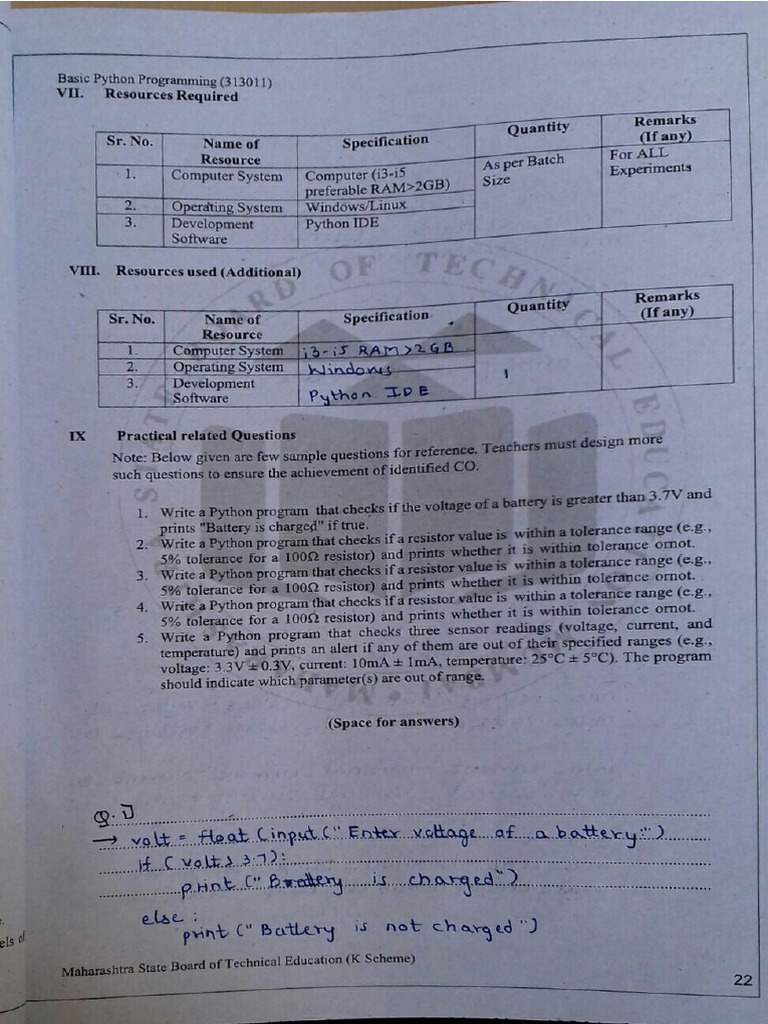 Basic Python Programming (313011)
VII. Resources Required
Sr. No. Name of Resource Specification Quantity Remarks (If any)
1. Computer System Computer (i3-i5 preferable RAM>2GB) As per Batch Size For ALL Experiments
2. Operating System Windows/Linux
3. Development Software Python IDE
VIII. Resources used (Additional)
Sr. No. Name of Resource Specification Quantity Remarks (If any)
1. Computer System i3-i5 RAM>2GB 1
2. Operating System Windows
3. Development Software Python IDE
IX Practical related Questions
Note: Below given are few sample questions for reference. Teachers must design more
such questions to ensure the achievement of identified CO.
1. Write a Python program that checks if the voltage of a battery is greater than 3.7V and
prints "Battery is charged" if true.
2. Write a Python program that checks if a resistor value is within a tolerance range (e.g.,
5% tolerance for a 100Ω resistor) and prints whether it is within tolerance ornot.
3. Write a Python program that checks if a resistor value is within a tolerance range (e.g.,
5% tolerance for a 100Ω resistor) and prints whether it is within tolerance ornot.
4. Write a Python program that checks if a resistor value is within a tolerance range (e.g.,
5% tolerance for a 100Ω resistor) and prints whether it is within tolerance ornot.
5. Write a Python program that checks three sensor readings (voltage, current, and
temperature) and prints an alert if any of them are out of their specified ranges (e.g.,
voltage: 3.3V ± 0.3V, current: 10mA ± 1mA, temperature: 25°C ± 5°C). The program
should indicate which parameter(s) are out of range.
(Space for answers)
Q.1
→ volt = float (input (" Enter voltage of a battery:")
if (volt > 3.7):
print (" Battery is charged")
else :
print (" Battery is not charged ")
Maharashtra State Board of Technical Education (K Scheme)
22
els of